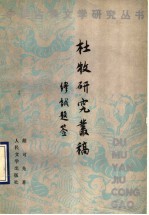 古典文学研究丛书
杜牧研究叢稿
缪钺题签
DU MU YAN
JIU CONG
GAO
人民文学出版社